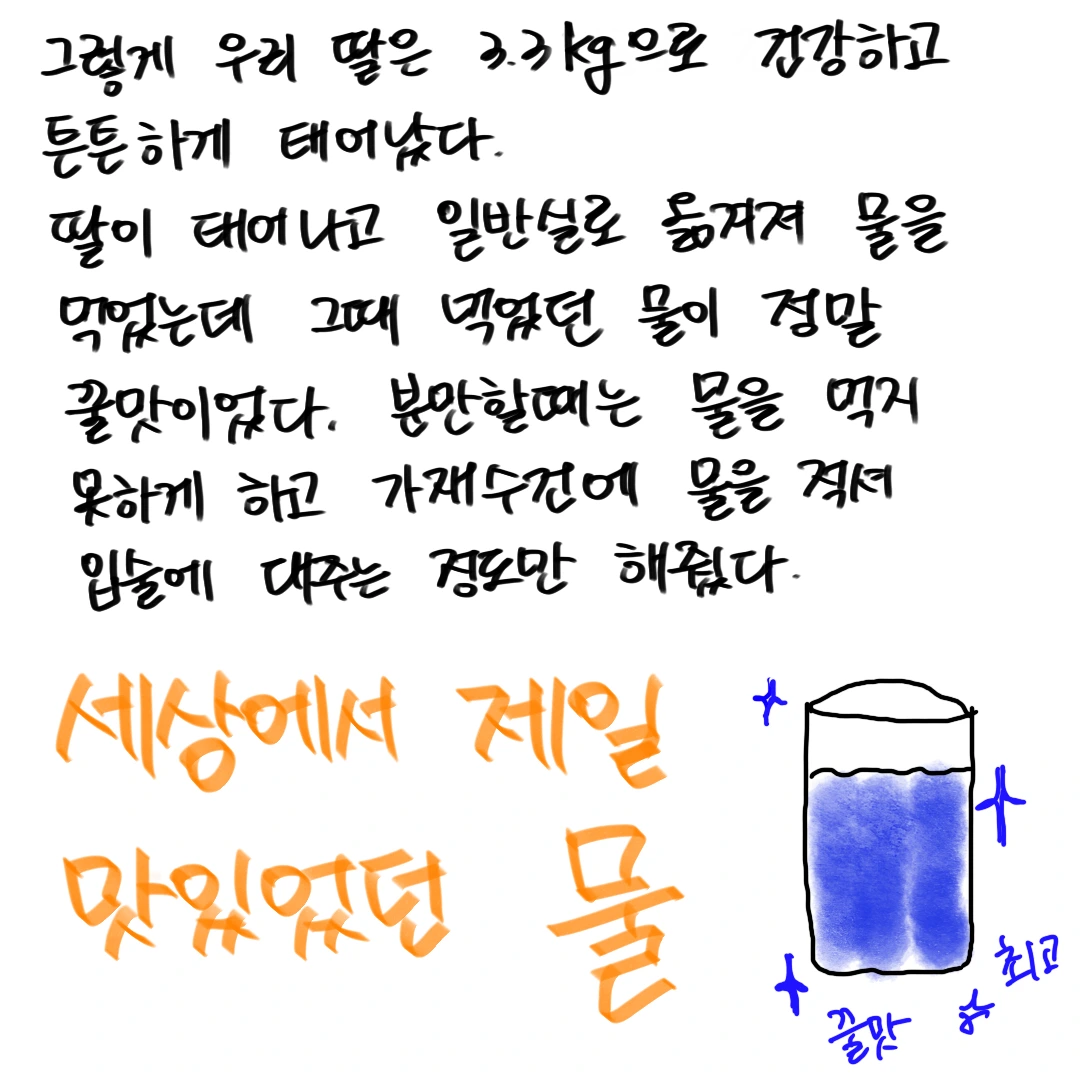 그렇게 우리 딸은 3.3kg으로 건강하고
튼튼하게 태어났다.
딸이 태어나고 일반실로 옮겨져 물을
먹었는데 그때 먹었던 물이 정말
꿀맛이었다. 분만할때는 물을 먹지
못하게 하고 가재수건에 물을 적셔
입술에 대주는 정도만 해줬다.
세상에서 제일
맛있었던 물
최고
꿀맛